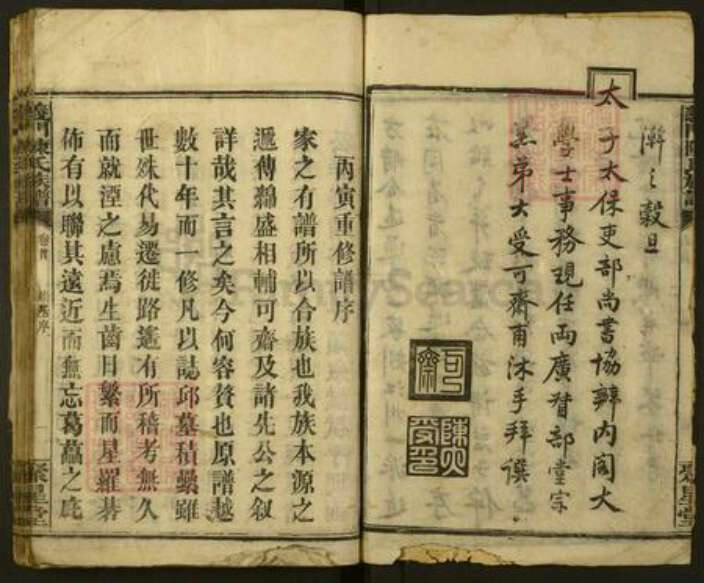 澣之穀旦
太子太保吏部尚書協辦內閣大
學士事務現任兩廣督部堂宗
弟大受可齋甫沐手拜譔
可齋
陳大受印
丙寅重修譜序
家之有譜所以合族也我族本源之
遞傳緜盛相輔可齋及諸先公之叙
詳哉其言之矣今何容贅也原譜越
數十年而一修凡以誌邱墓積纍雖
世殊代易遷徙路遙有所稽考無久
而就湮之慮焉生齒日繁而星羅碁
佈有以聯其遠近而無忘葛藟之庇
義門陳氏族譜
卷首
聚星堂